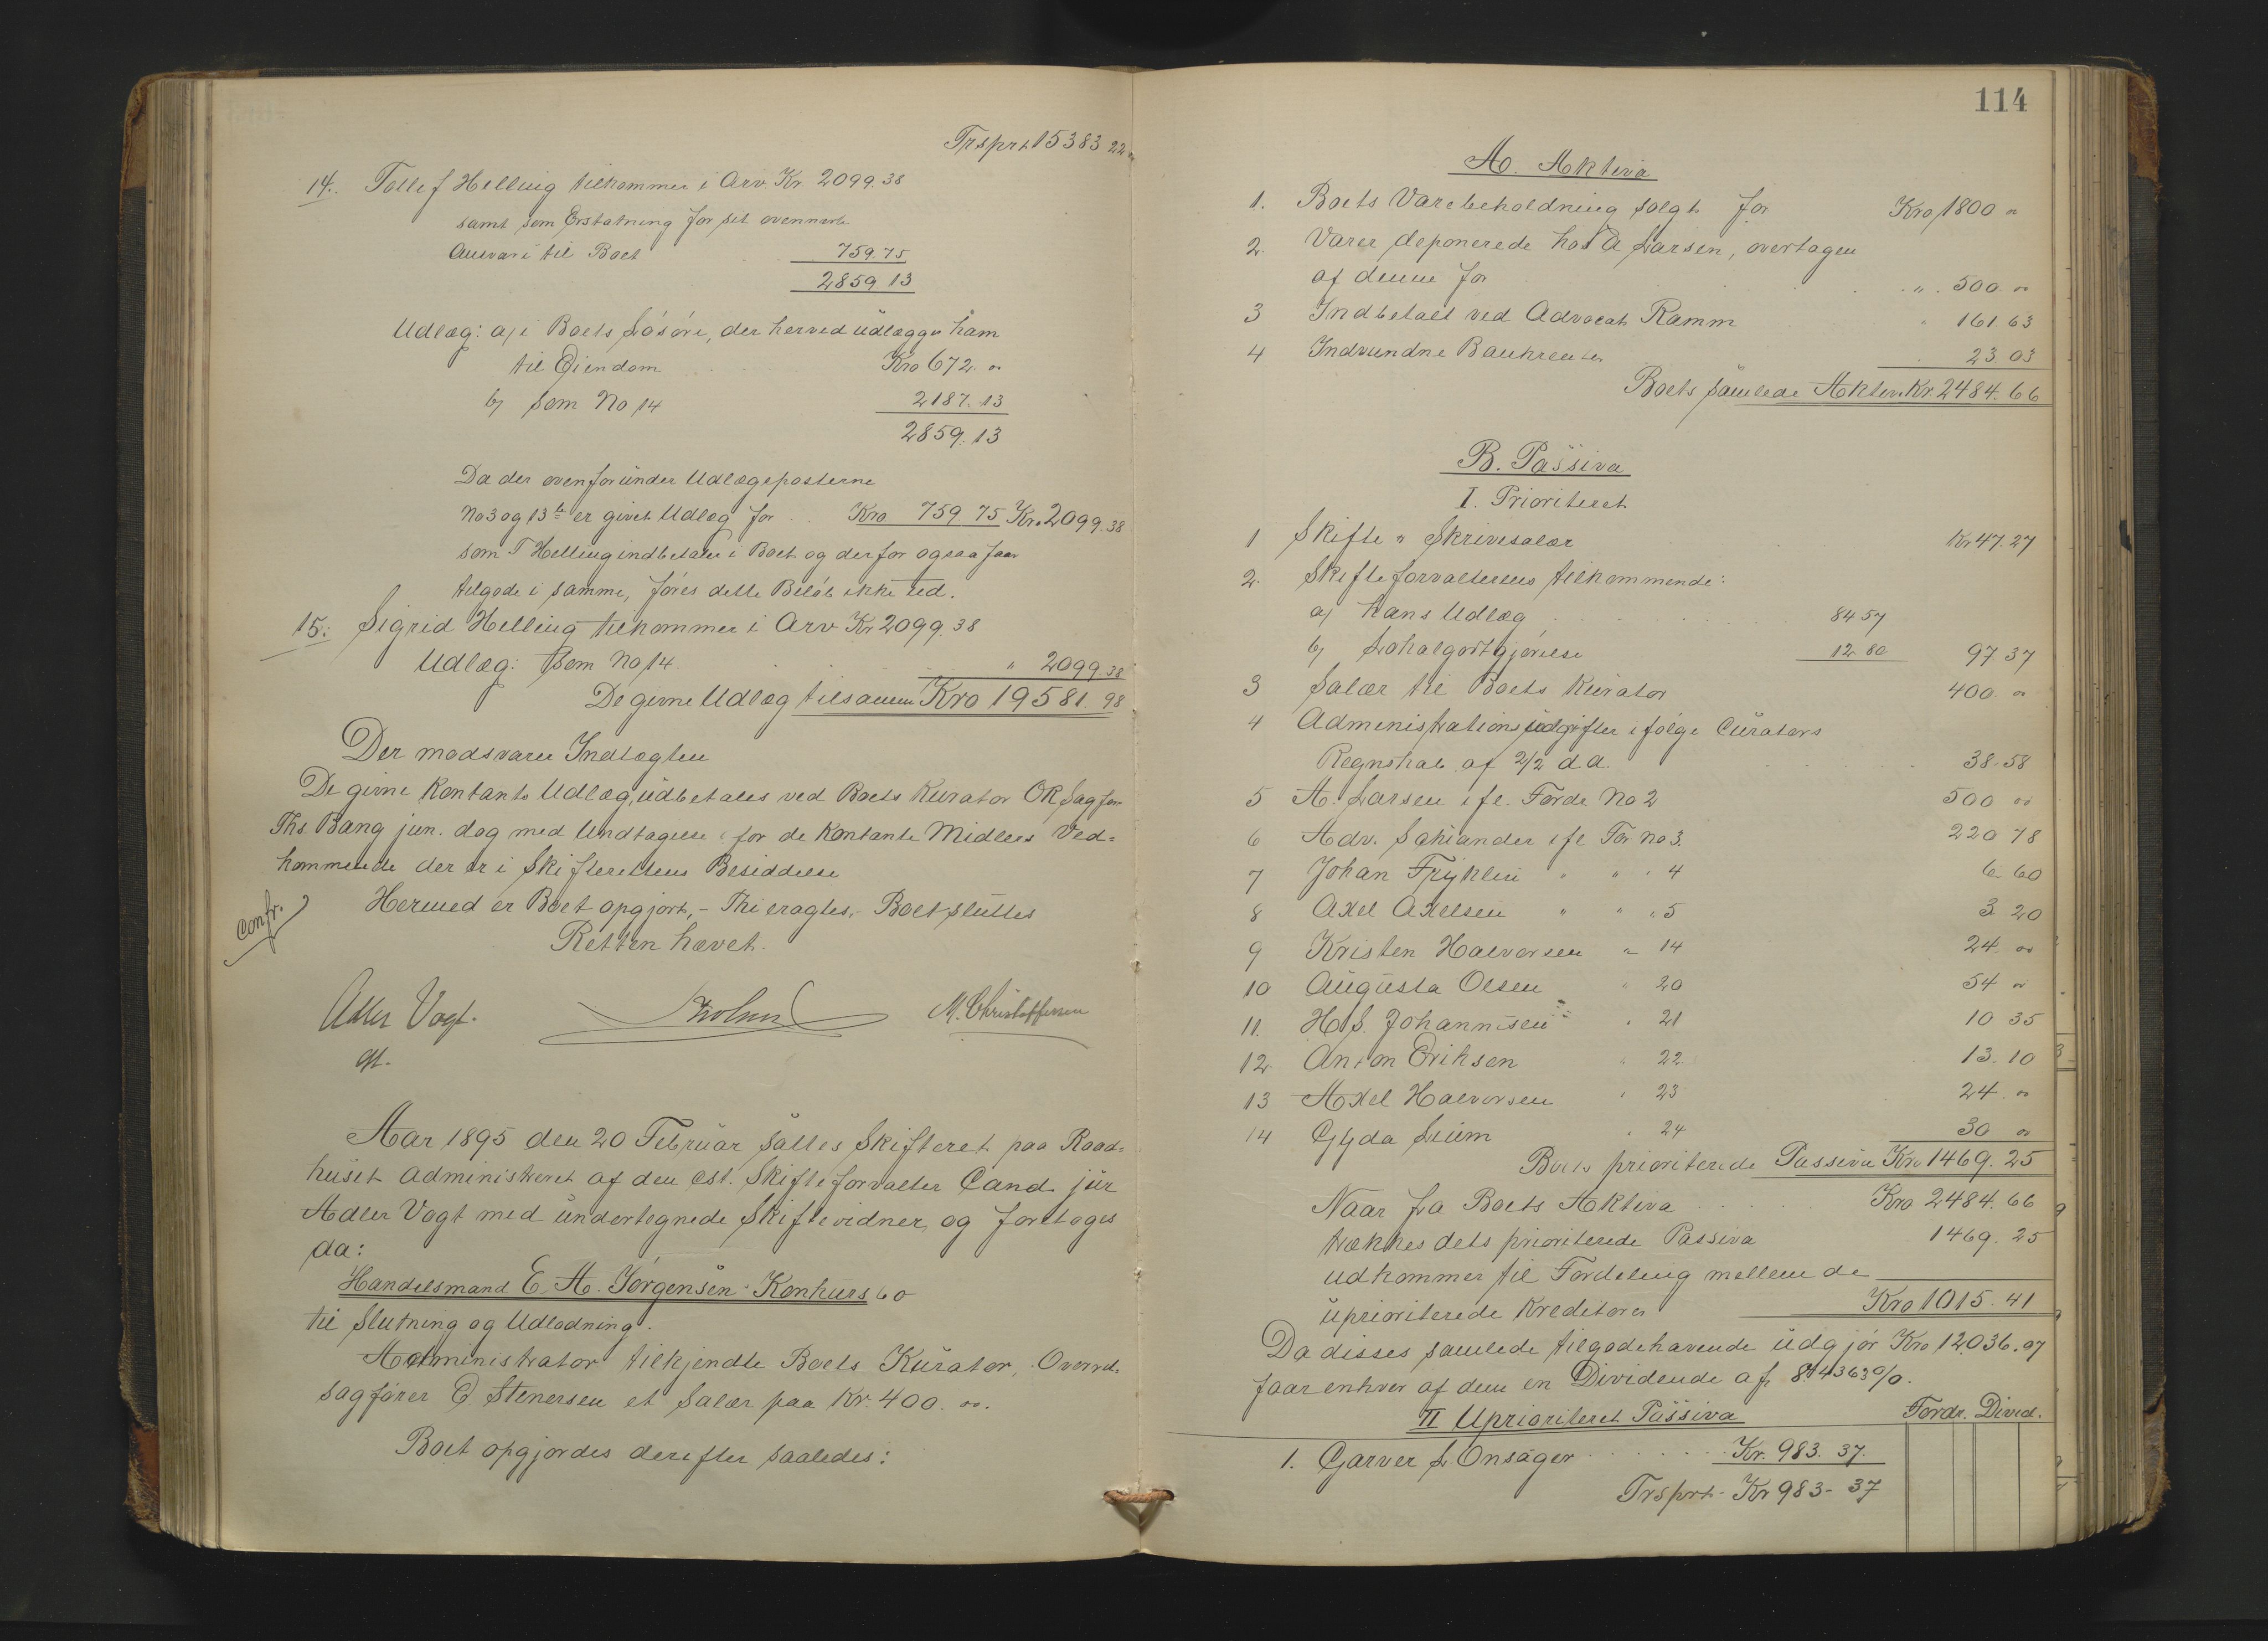 Trsprt 15383 22
14. Tollef Helling tilkommer i Arv Kr 2099.38
samt som Erstatning for sit ovennævnte
Ansvar i til Boet 759.75
2859 13
Udlæg: a) i Boets Løsøre, der herved udlægges ham
til Eiendom Kro 672. "
b) som No 14 2187. 13
2859. 13
Da der ovenfor under Udlægsposterne
No 3 og 13 b er givet Udlæg for Kro 759 75 Kr. 2099.38
som T Helling indbetaler i Boet og derfor ogsaa faar
tilgode i samme, føres dette Beløb ikke ud.
15: Sigrid Helling tilkommer i Arv Kr 2099.38
Udlæg: Som No 14. " 2099.38
De givne Udlæg tilsammen Kro 19581. 98
Der modsvarer Indtægten
De givne Kontante Udlæg, udbetales ved Boets Kurator OR Sagfør
Ths. Bang jun. dog med Undtagelse for de Kontante Midlers Ved=
kommende der er i Skifterettens Besiddelse
Hermed er Boet opgjort, - Thi eragtes, - Boet sluttes
Confr.
Retten hævet.
Adler Vogt. M. Christoffersen
cst.
Aar 1895 den 20 Februar sattes Skifteret paa Raad=
huset administreret af den cst. Skifteforvalter Cand. jur
Adler Vogt med undertegnede Skiftevidner, og foretoges
da:
Handelsmand E. A. Jørgensen Konkursbo
til Slutning og Udlodning.
Administrator tilkjendte Boets Kurator, Overrets
sagfører E Stenersen et Salær paa Kr. 400. oo.
Boet opgjordes derefter saaledes:
114
A. Aktiva
1. Boets Varebeholdning solgt for Kro 1800 "
2. Varer deponerede hos A Larsen, overtagen
af denne for " 500 "
3 Indbetalt ved Advocat Ramm " 161.63
4 Indvundne Bankrenter 23 03
Boets samlede Aktiva Kr. 2484. 66
B. Passiva
I. Prioriteret
1 Skifte " Skrivesalær Kr 47. 27
2. Skifteforvalterens tilkommende:
a) hans Udlæg 84 57
b) Lokalgodtgjørelse 12. 80 97 37
3 Salær til Boets Kurator 400 "
4 Administrationsudgifter ifølge Curators
Regnskab af 2/2 d A. 38. 58
5 A. Larsen ifl. Fordr No 2 500 oo
6 Adv. Schiander ifl For no 3. 220 78
7 Johan Fryklin " " " 4 6 60
8 Axel Axelsen " " " 5 3 20
9 Kristen Halvorsen " 14 24 oo
10 Augusta Olsen " 20 54 "
11. H. S. Johannisen " 21 10 35
12. Anton Eriksen " 22 13. 10
13 Axel Halvorsen " 23 24. "
14 Gyda Lium " 24 30 "
Boets prioriterede Passiva Kro 1469. 25
Naar fra Boets Aktiva Kro 2484. 66
trækkes dets prioriterede Passiva 1469. 25
udkommer til Fordeling mellem de
uprioriterede Kreditorer Kro 1015. 41
Da disses samlede tilgodehavende udgjør Kro 12.036.07
faar enhver af dem en Dividende af 8.4363 %.
II Uprioriteret Passiva Fordr. Divid.
1. Garver L. Onsager Kr. 983. 37.
Trsprt. Kr 983 - 37